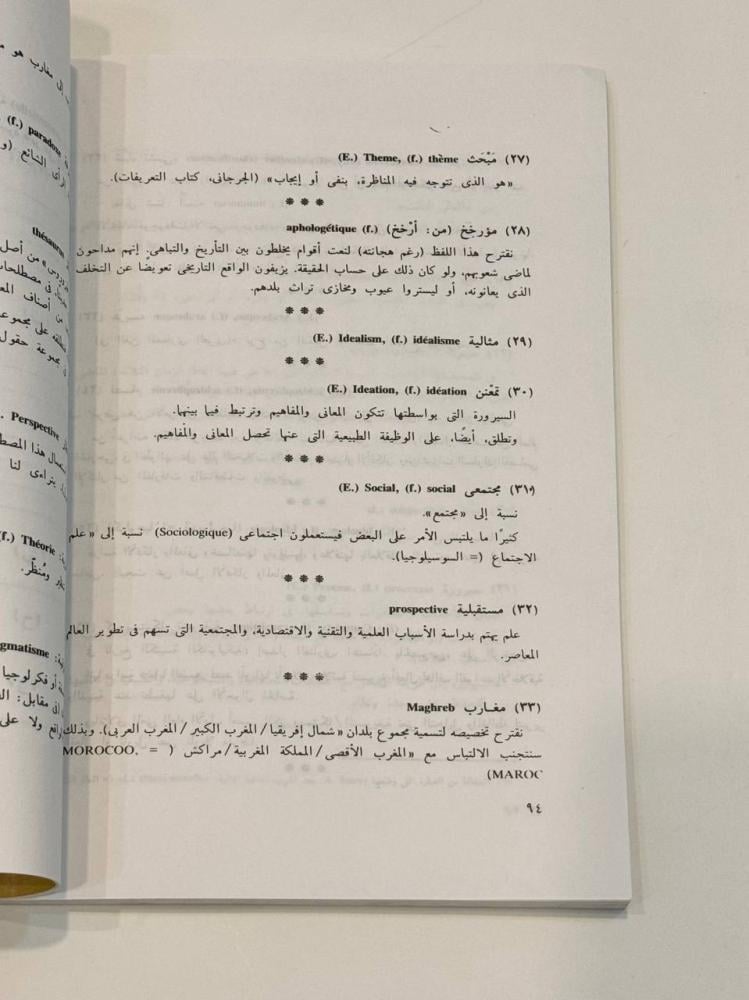 (٢٧) مَبْحَث (E.) Theme, (f.) thème
«هو الذى تتوجه فيه المناظرة، بنفى أو إيجاب» (الجرجانى، كتاب التعريفات).
***
(٢٨) مؤرخِخ (من: أرْخخ) aphologétique (f.)
نقترح هذا اللفظ (رغم هجانته) لنعت أقوام يخلطون بين التأريخ والتباهى. إنهم مداحون
لماضى شعوبهم، ولو كان ذلك على حساب الحقيقة. يزيفون الواقع التاريخى تعويضًا عن التخلف
الذى يعانونه، أو ليستروا عيوب ومخازى تراث بلدهم.
***
(٢٩) مثالية (E.) Idealism, (f.) idéalisme
***
(٣٠) تمَعْنن (E.) Ideation, (f.) idéation
السيرورة التى بواسطتها تتكون المعانى والمفاهيم وترتبط فيما بينها.
وتطلق، أيضًا، على الوظيفة الطبيعية التى عنها تحصل المعانى والمفاهيم.
***
(٣١) مجتمعى (E.) Social, (f.) social
نسبة إلى «مجتمع».
كثيرًا ما يلتبس الأمر على البعض فيستعملون اجتماعى (Sociologique) نسبة إلى «علم
الاجتماع (= السوسيلوجيا).
***
(٣٢) مستقبلية prospective
علم يهتم بدراسة الأسباب العلمية والتقنية والاقتصادية، والمجتمعية التى تسهم فى تطوير العالم
المعاصر.
***
(٣٣) مغارب Maghreb
نقترح تخصيصه لتسمية مجموع بلدان «شمال إفريقيا/المغرب الكبير/المغرب العربى). وبذلك
سنتجنب الالتباس مع «المغرب الأقصى/المملكة المغربية/مراكش ( = MOROCOO.
MAROC)
٩٤
إلى مغارب هو
(f.) paradoxe
الرأى الشائع
thésaurus
من أصل
فى مصطلحات
من أصناف
على
مجموعة حقول
Perspective
هذا
يتراءى لنا
(f.) Théorie
ومُنظِّر.
gmatisme
أو فكرلوجيا
فى مقابل:
ولا على